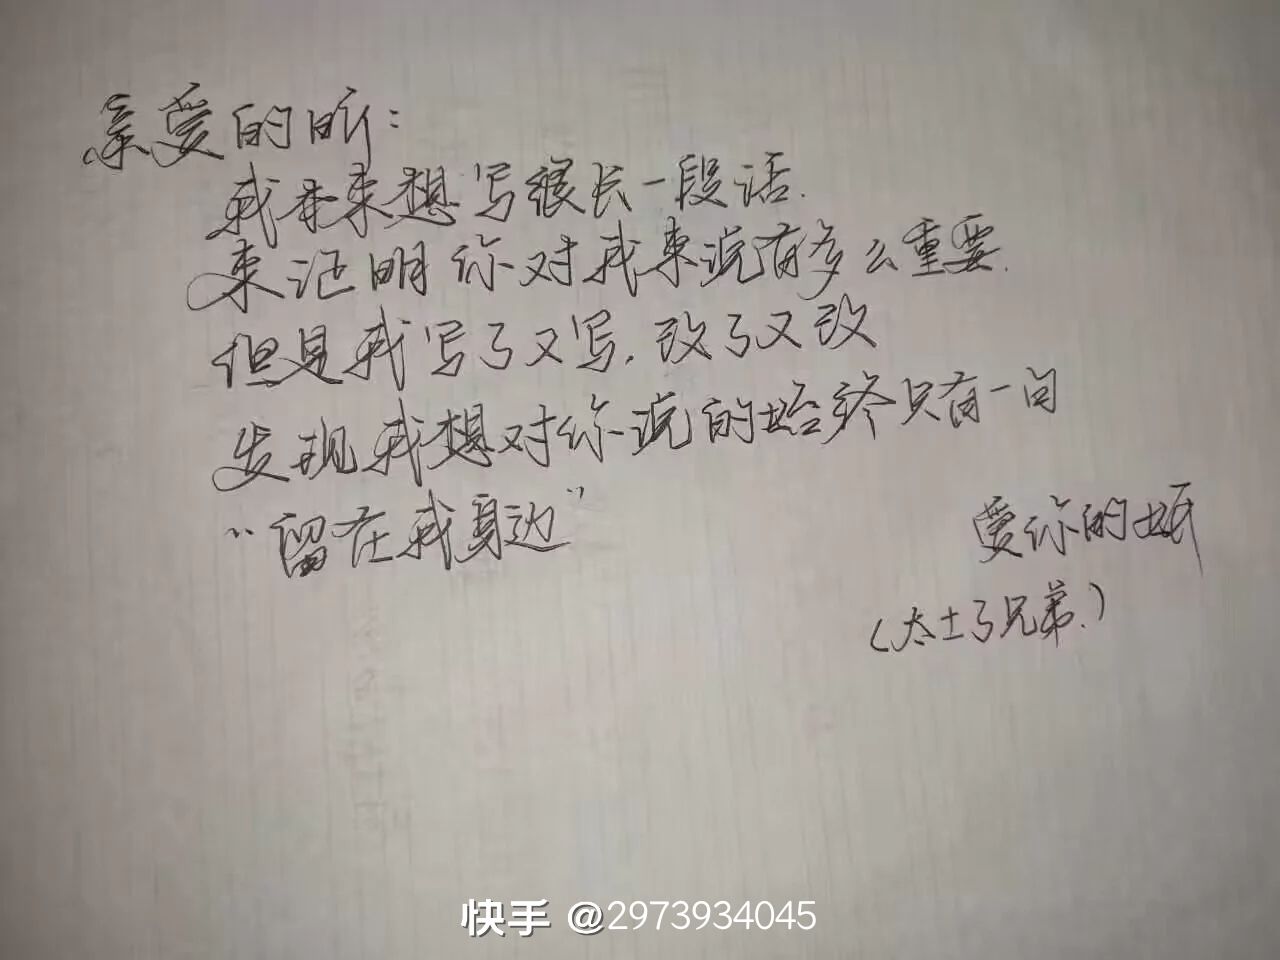 亲爱的昕：
我本来想写很长一段话.
来证明你对我来说有多么重要.
但是我写了又写.改了又改
发现我想对你说的始终只有一句
“留在我身边”
爱你的
(太土了兄弟.)
快手 @2973934045